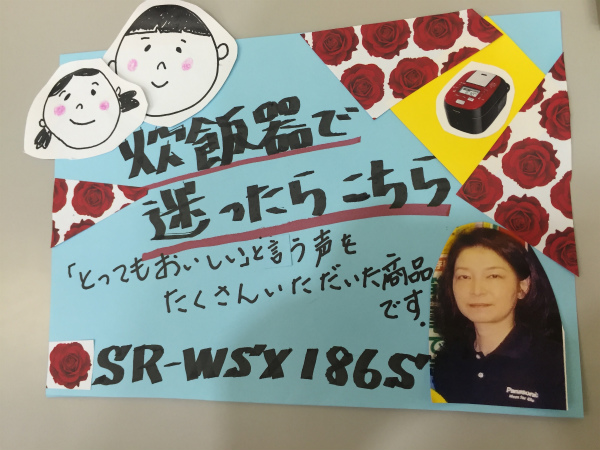 炊飯器で
迷ったらこちら
「とってもおいしい」と言う声を
たくさんいただいた商品
です.
SR-WSX186S
Panasonic